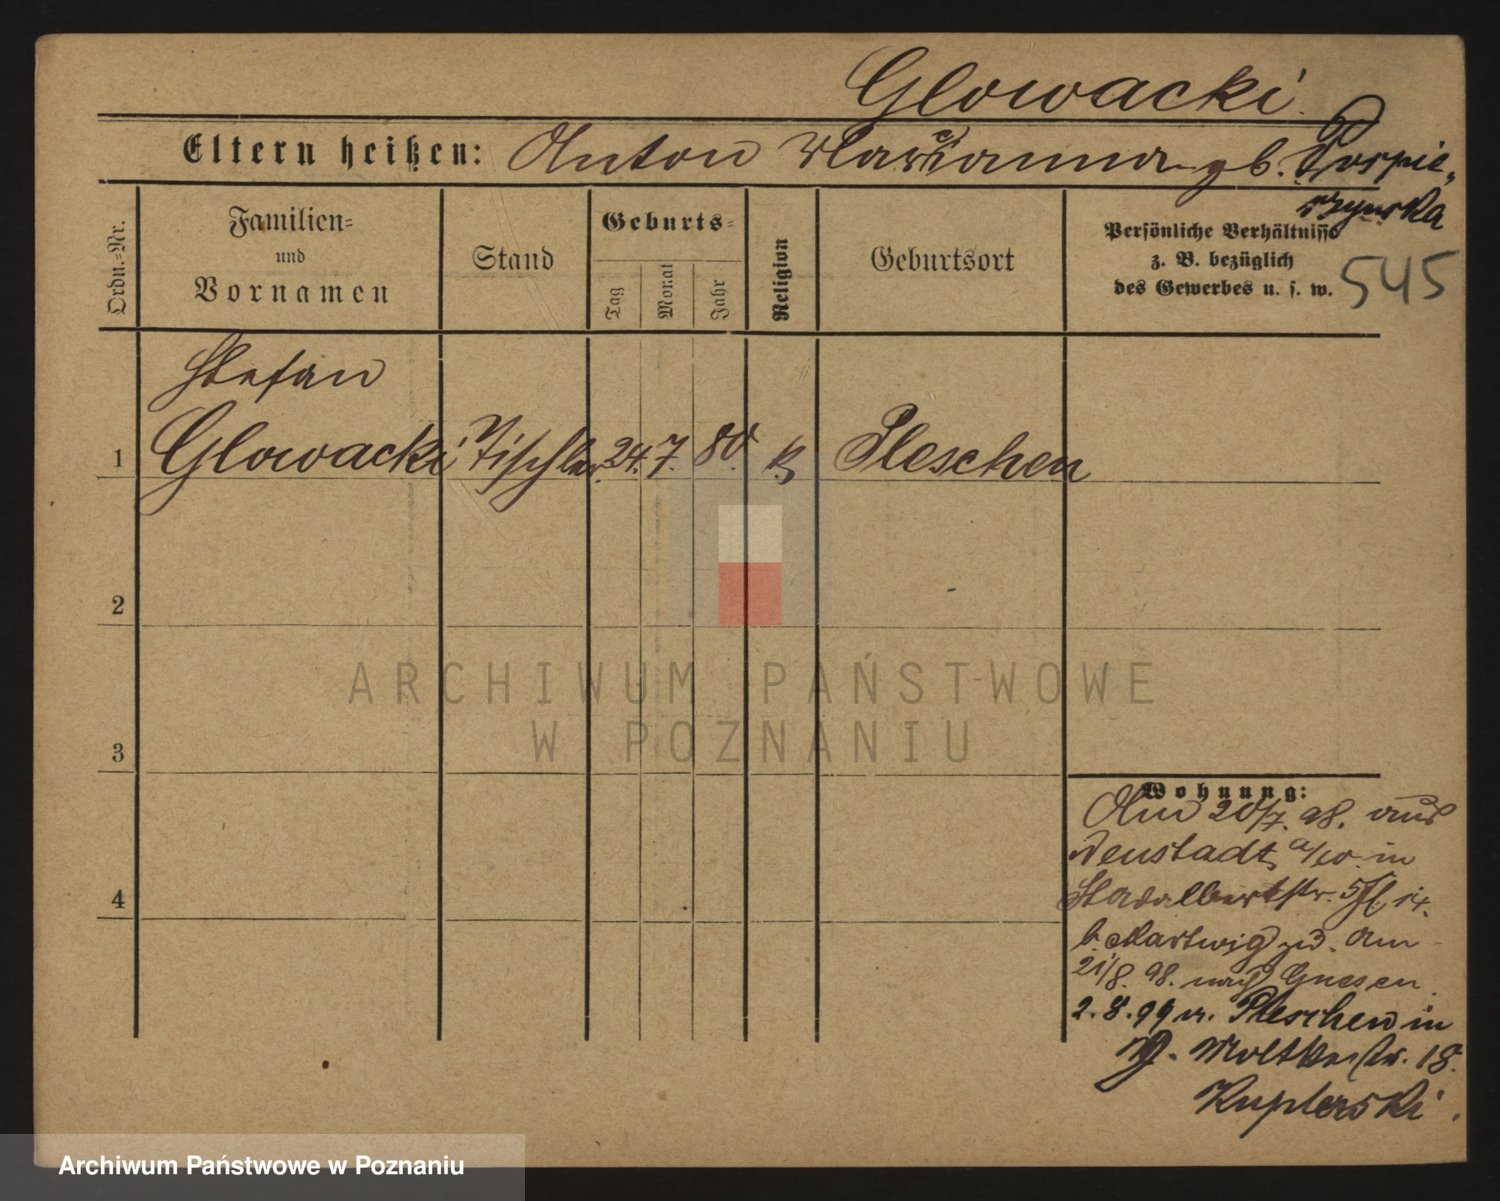 Glowacki.
Eltern heißen: Anton Marianna gb. Pospie-
szynska
Ordn.-Nr.
Familien- und Vornamen
Stand
Geburts-
Tag
Monat
Jahr
Religion
Geburtsort
Persönliche Verhältnisse
z. B. bezüglich
des Gewerbes u. s. w.
545
Stefan
1 Glowacki Tischler 24. 7. 80. k Pleschen
2
3
4
Wohnung:
Am 20/7. 98. aus
Neustadt a/W. in
14.
b. Hartwig zu. Am
21/8. 98. nach Gnesen.
2.8.99 v. Pleschen in
W. Moltkestr. 18.
Kuplerski.
ARCHIWUM PAŃSTWOWE
W POZNANIU
Archiwum Państwowe w Poznaniu